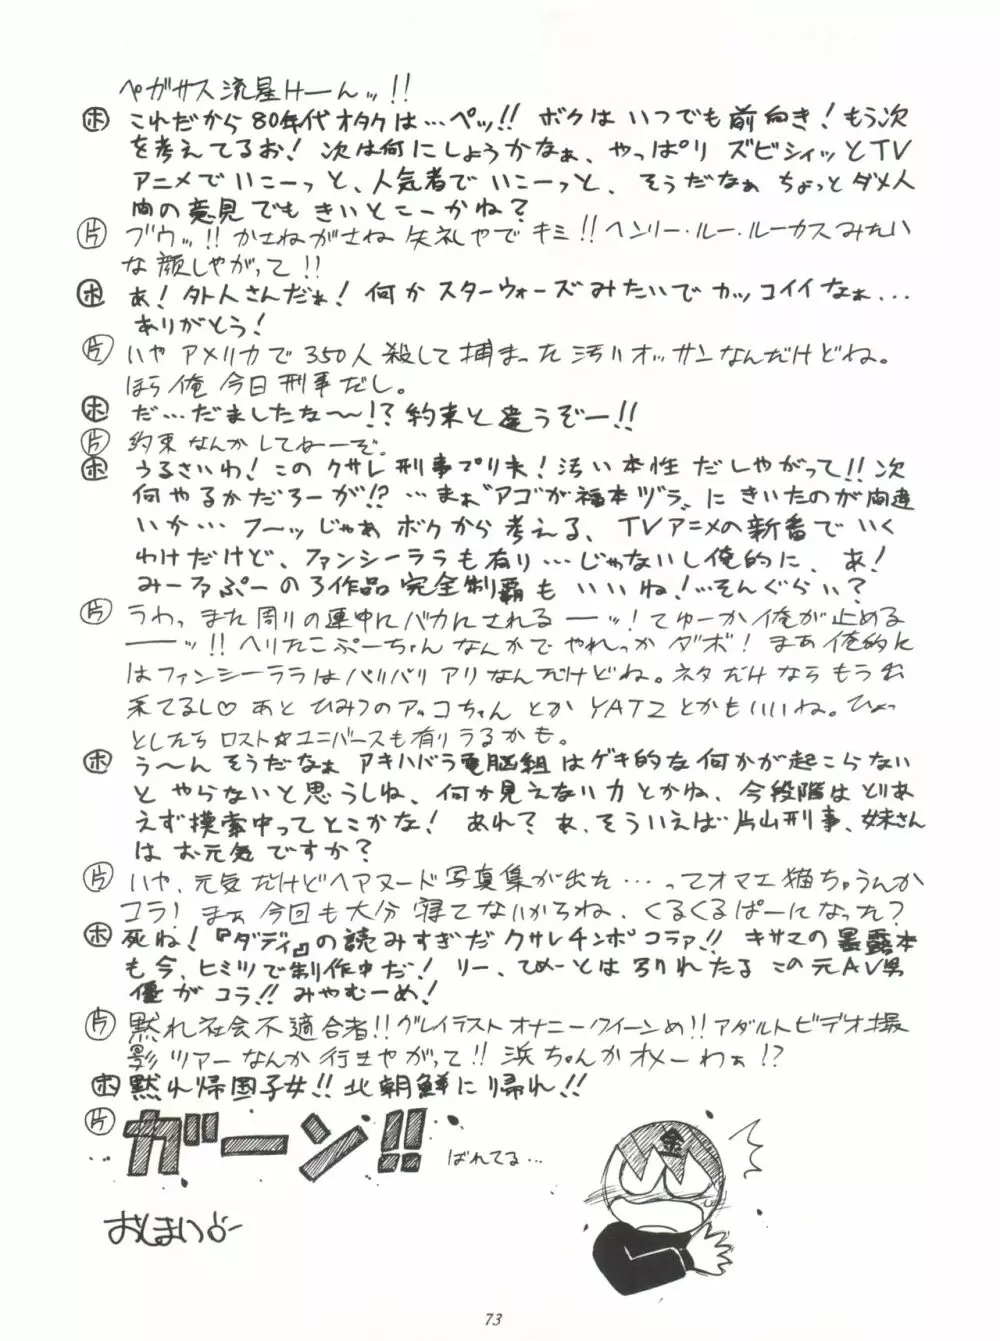 ペガサス流星けーんッ!!
ホ これだから80年代オタクは…ペッ!! ボクはいつでも前向き!もう次
を考えてるお! 次は何にしようかなぁ、やっぱり ズビシィッとTV
アニメでいこーっと、人気者でいこーっと、そうだなぁ ちょっとダメ人
間の意見でも きいとこーかね?
片 ブウッ!! かさねがさね 失礼やで キミ!! ヘンリー・ルー・ルーカスみたい
な顔しやがって!!
ホ あ! 外人さんだぁ! 何か スターウォーズみたいで カッコイイなぁ...
ありがとう!
片 いや アメリカで 350人 殺して 捕まった 汚いオッサンなんだけどね。
ほら 俺 今日 刑事だし。
ホ だ…だましたな〜!? 約束と違うぞー!!
片 約束なんか してねーぞ。
ホ うるさいわ! この クサレ 刑事プリ夫! 汚い本性 だしやがって!! 次
何やるかだろーが!? …まぁ“アゴが福本ヅラ”に きいたのが間違
いか… フ〜ッ じゃぁ ボクから 考える、TVアニメの新番で いく
わけだけど、ファンシーララも有り…じゃないし俺的に、あ!
みーるぷーの3作品 完全制覇も いいね!…そんぐらい?
片 うわっ また 周りの連中に バカにされる ーーッ! てゆーか 俺が止める
ーーッ!! ヘリたこぷーちゃん なんかで やれっか ダボ! まぁ 俺的に
はファンシーララは バリバリ アリなんだけどね。ネタだけなら もう出
来てるし♡ あと ひみつのアッコちゃん とか YAT2 とかもいいね。ひょっ
としたら ロスト☆ユニバースも有りうるかも。
ホ う〜ん そうだなぁ アキハバラ電脳組は ゲキ的な何かが起こらない
と やらないと思うしね、何か見えない力とかね、今段階は とりあ
えず模索中ってとこかな! あれ? あ、そういえば 片山刑事、妹さん
は お元気ですか?
片 いや、元気だけどヘアヌード写真集が出た…ってオマエ猫ちゃうんか
コラ! まぁ 今回も大分 寝てないからね、くるくるぱーになった?
ホ 死ね!『ダディ』の読みすぎだ クサレチンポコラァ!! キサマの暴露本
も今、ヒミツで制作中だ! リー、てめーとは 別れたる この元AV男
優が コラ!! みやむーめ!
片 黙れ社会不適合者!! グレイテストオナニークイーンめ!! アダルトビデオ撮
影ツアーなんか行きやがって!! 浜ちゃんかオメーわぁ!?
ホ 黙れ帰国子女!! 北朝鮮に帰れ!!
片 ガーン!! ばれてる…
金
おしまい
73